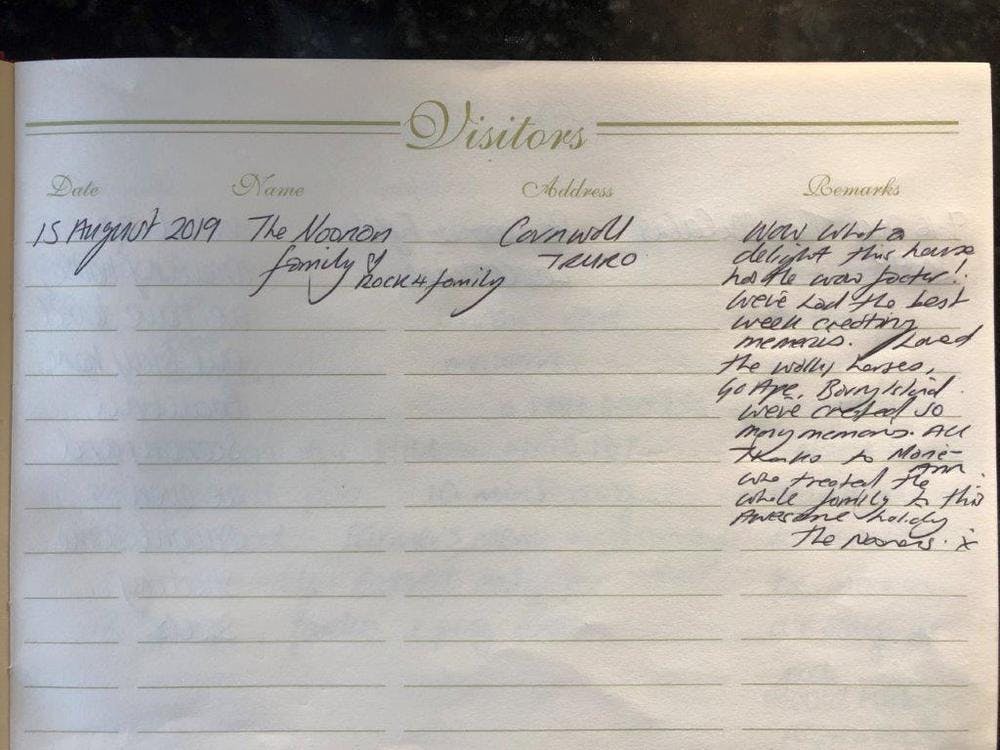 Visitors
Date Name Address Remarks
15 August 2019 The Noonan Cornwall Wow what a
family & TRURO delight this house
Rock 4 family has the wow factor!
weve had the best
week creating
memories. Loved
the wally horses,
Go Ape, Barry Island.
weve created so
many memories. All
thanks to Marie-
Ann
who treated the
whole family to this
Awesome holiday
The Noonans. x